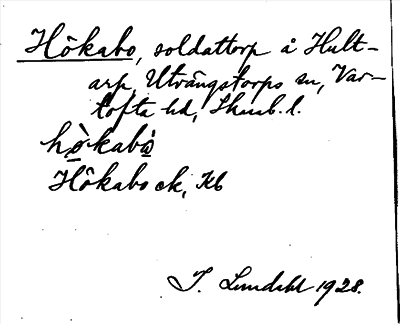 Hökabo, soldattorp å Hult-
arp, Utvängstorps sn, Var-
tofta hd, Skarab. l.
hö̀kabò
Hökabo ek, Kb
I. Lundahl 1928.